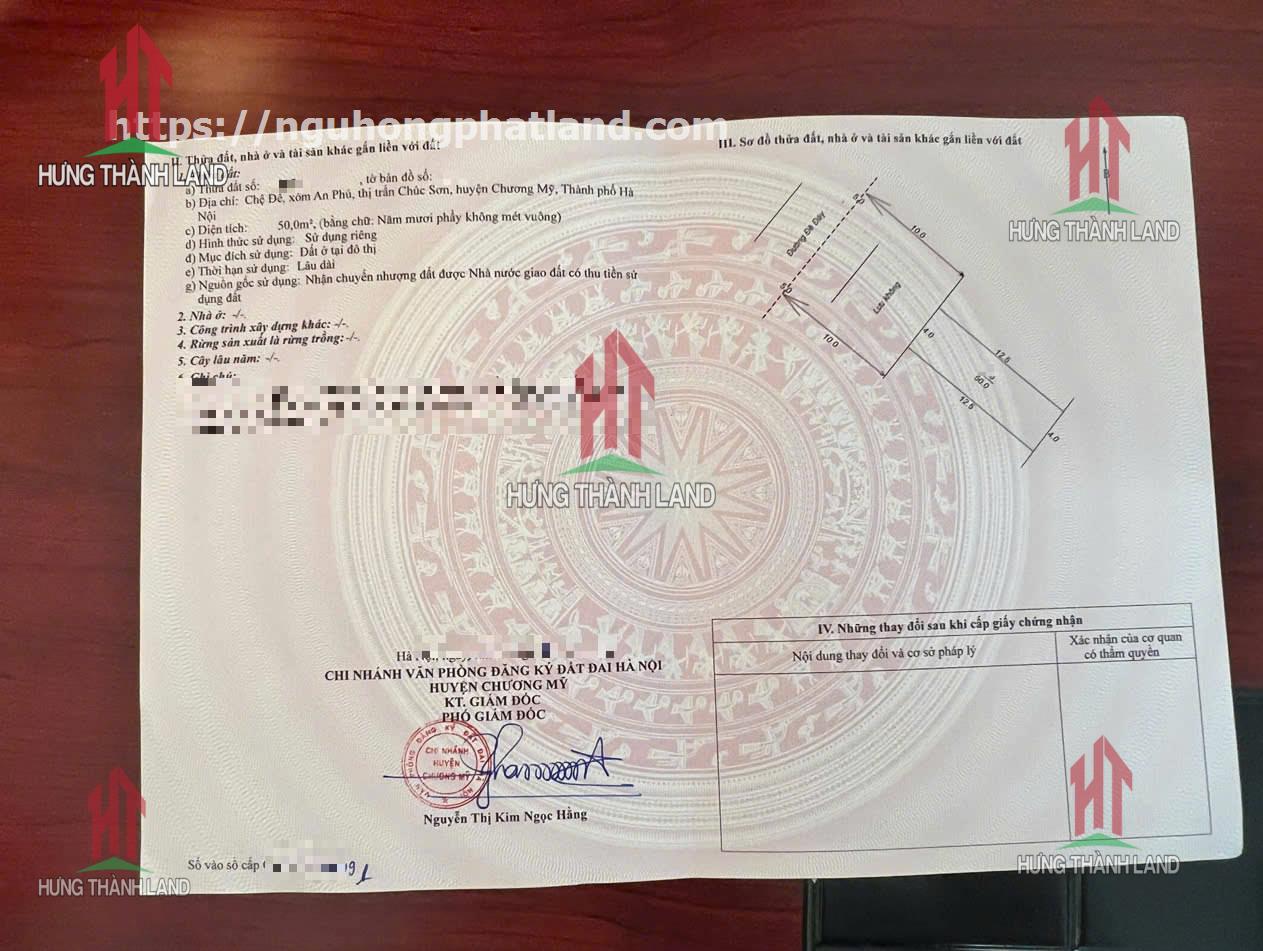 https://nguhongphatland.com
HƯNG THÀNH LAND
HƯNG THÀNH LAND
II. Thửa đất, nhà ở và tài sản khác gắn liền với đất
đất:
a) Thửa đất số: , tờ bản đồ số:
b) Địa chỉ: Chệ Đê, xóm An Phú, thị trấn Chúc Sơn, huyện Chương Mỹ, Thành phố Hà
Nội
c) Diện tích: 50,0m², (bằng chữ: Năm mươi phẩy không mét vuông)
d) Hình thức sử dụng: Sử dụng riêng
đ) Mục đích sử dụng: Đất ở tại đô thị
e) Thời hạn sử dụng: Lâu dài
g) Nguồn gốc sử dụng: Nhận chuyển nhượng đất được Nhà nước giao đất có thu tiền sử
dụng đất
2. Nhà ở: -/-.
3. Công trình xây dựng khác: -/-.
4. Rừng sản xuất là rừng trồng: -/-.
5. Cây lâu năm: -/-.
Ghi chú:
HƯNG THÀNH LAND
Hà
CHI NHÁNH VĂN PHÒNG ĐĂNG KÝ ĐẤT ĐAI HÀ NỘI
HUYỆN CHƯƠNG MỸ
KT. GIÁM ĐỐC
PHÓ GIÁM ĐỐC
VĂN PHÒNG ĐĂNG KÝ ĐẤT ĐAI HÀ NỘI
CHI NHÁNH
HUYỆN
CHƯƠNG MỸ
Nguyễn Thị Kim Ngọc Hằng
Số vào sổ cấp
91
HƯNG THÀNH LAND
III. Sơ đồ thửa đất, nhà ở và tài sản khác gắn liền với đất
B
Đường Đê Đáy
10.0
Lưu không
10.0
4.0
12.5
50.0
12.5
4.0
IV. Những thay đổi sau khi cấp giấy chứng nhận
Nội dung thay đổi và cơ sở pháp lý
Xác nhận của cơ quan
có thẩm quyền
HƯNG THÀNH LAND